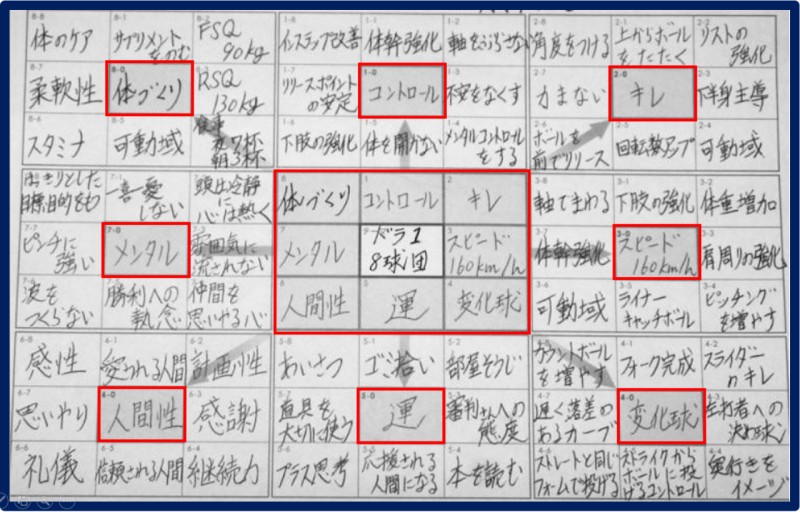 体のケア
サプリメント
をのむ
FSQ
90kg
柔軟性
体づくり
RSQ
130kg
スタミナ
可動域
食事
夜7杯
朝3杯
インステップ改善
体幹強化
軸をぶらさない
リリースポイント
の安定
コントロール
不安をなくす
下肢の強化
体を開かない
メンタルコントロール
をする
角度をつける
上からボール
をたたく
リストの
強化
力まない
キレ
下半身主導
ボールを
前でリリース
回転数アップ
可動域
はっきりとした
目標、目的をもつ
一喜一憂
しない
頭は冷静に
心は熱く
ピンチに
強い
メンタル
雰囲気に
流されない
波を
つくらない
勝利への
執念
仲間を
思いやる心
体づくり
コントロール
キレ
メンタル
ドラ1
8球団
スピード
160km/h
人間性
運
変化球
軸でまわる
下肢の強化
体重増加
体幹強化
スピード
160km/h
肩周りの強化
可動域
ライナー
キャッチボール
ピッチング
を増やす
感性
愛される人間
計画性
思いやり
人間性
感謝
礼儀
信頼される人間
継続力
あいさつ
ゴミ拾い
部屋そうじ
道具を
大切に使う
運
審判さんへの
態度
プラス思考
応援される
人間になる
本を読む
カウントボール
を増やす
フォーク完成
スライダー
のキレ
遅く落差の
あるカーブ
変化球
左打者への
決め球
ストレートと同じ
フォームで投げる
ストライクから
ボールに投
げるコントロール
奥行きを
イメージ